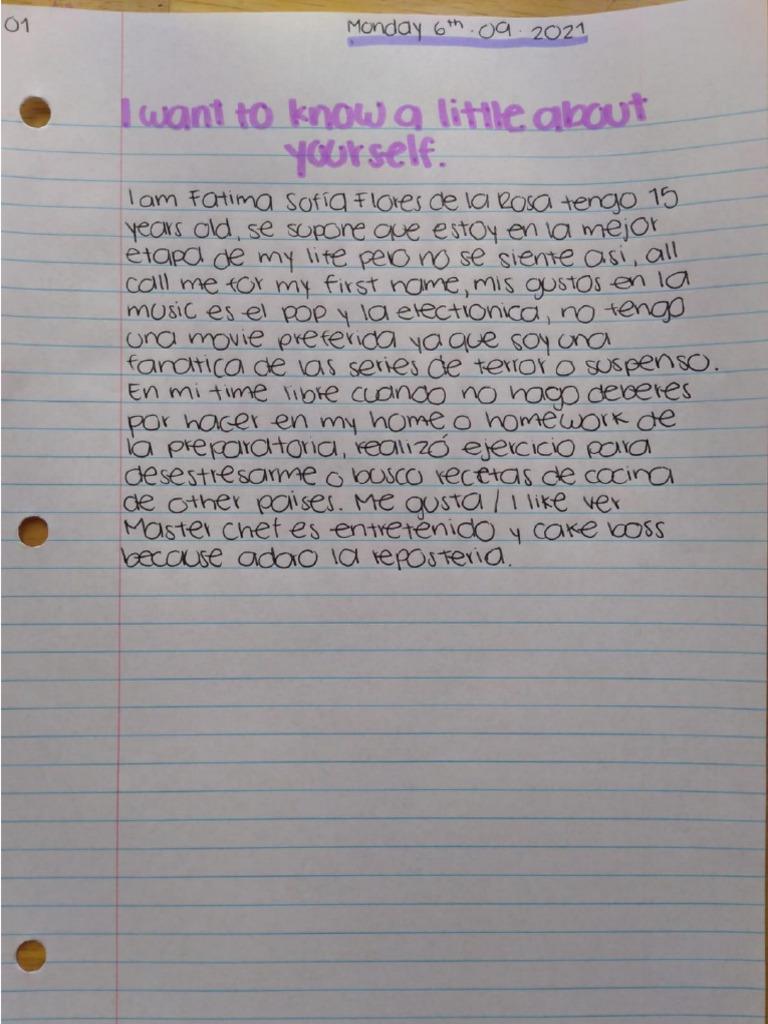 01
Monday 6th.09.2021
I want to know a little about
yourself.
I am Fatima Sofía Flores de la Rosa tengo 15
years old, se supone que estoy en la mejor
etapa de my life pero no se siente asi, all
call me for my first name, mis gustos en la
music es el pop y la electronica, no tengo
una movie preferida ya que soy una
fanatica de las series de terror o suspenso.
En mi time libre cuando no hago deberes
por hacer en my home o homework de
la preparatoria, realizó ejercicio para
desestresarme o busco recetas de cocina
de other paises. Me gusta / I like ver
Master chef es entretenido y cake boss
because adoro la reposteria.